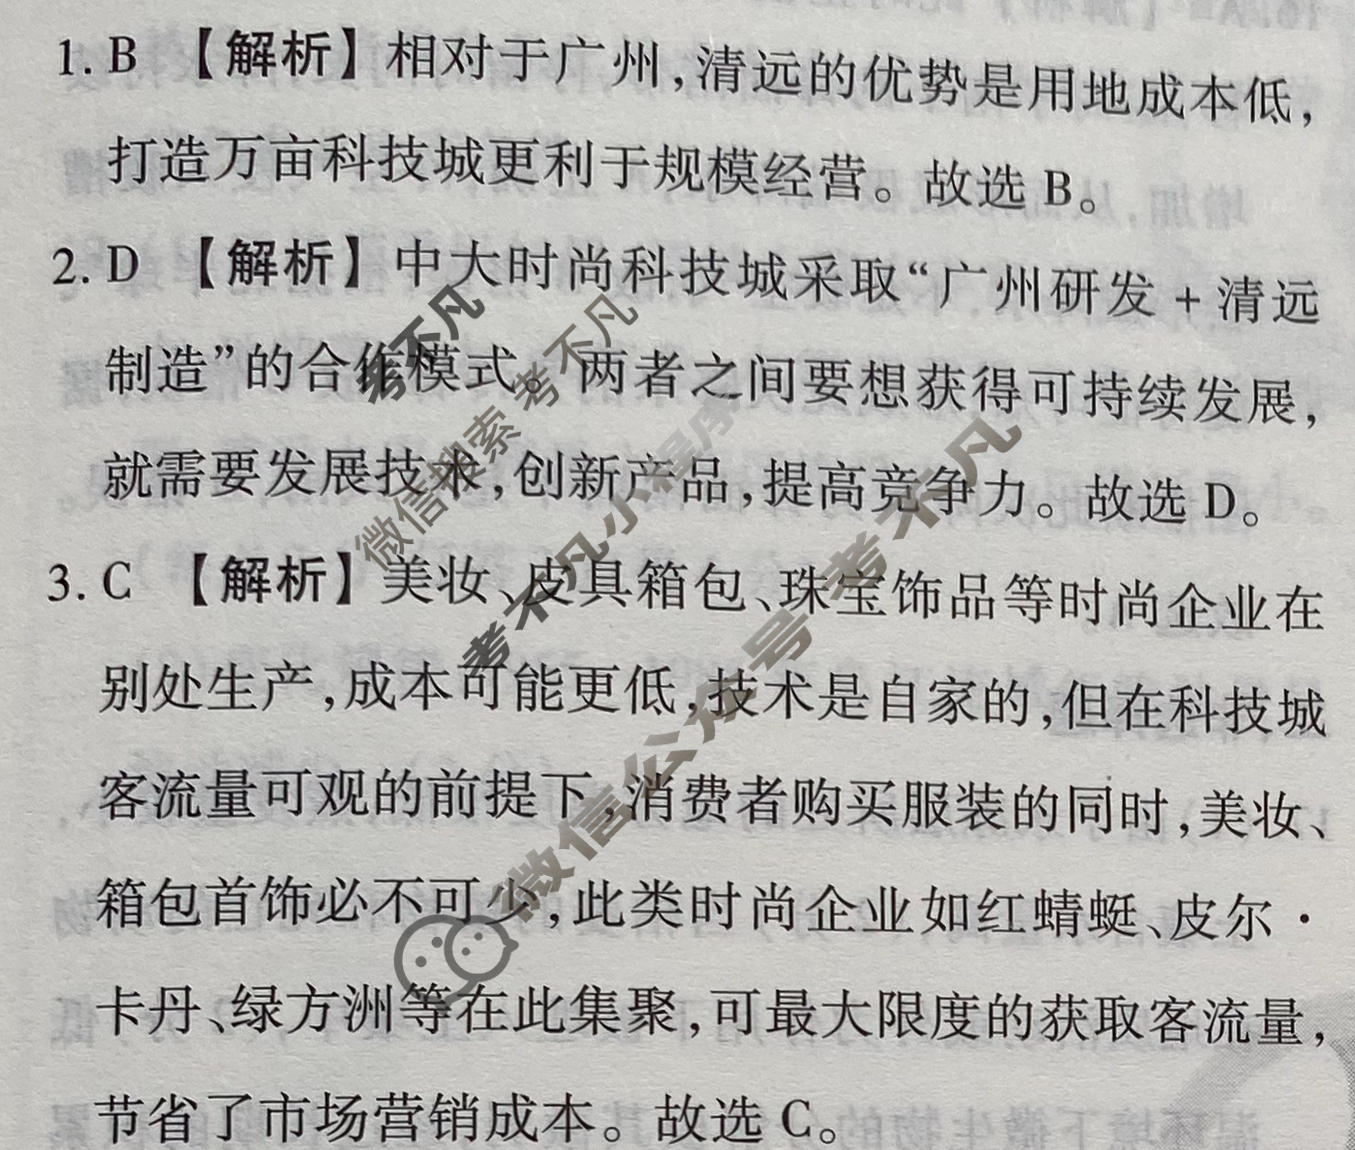 1. B 【解析】相对于广州,清远的优势是用地成本低,
打造万亩科技城更利于规模经营。故选 B。
2. D 【解析】中大时尚科技城采取“广州研发 + 清远
制造”的合作模式。两者之间要想获得可持续发展,
就需要发展技术,创新产品,提高竞争力。故选 D。
3. C 【解析】美妆、皮具箱包、珠宝饰品等时尚企业在
别处生产,成本可能更低,技术是自家的,但在科技城
客流量可观的前提下,消费者购买服装的同时,美妆、
箱包首饰必不可少,此类时尚企业如红蜻蜓、皮尔·
卡丹、绿方洲等在此集聚,可最大限度的获取客流量,
节省了市场营销成本。故选 C。
考不凡
微信搜索 考不凡
考不凡小程序
微信公众号 考不凡